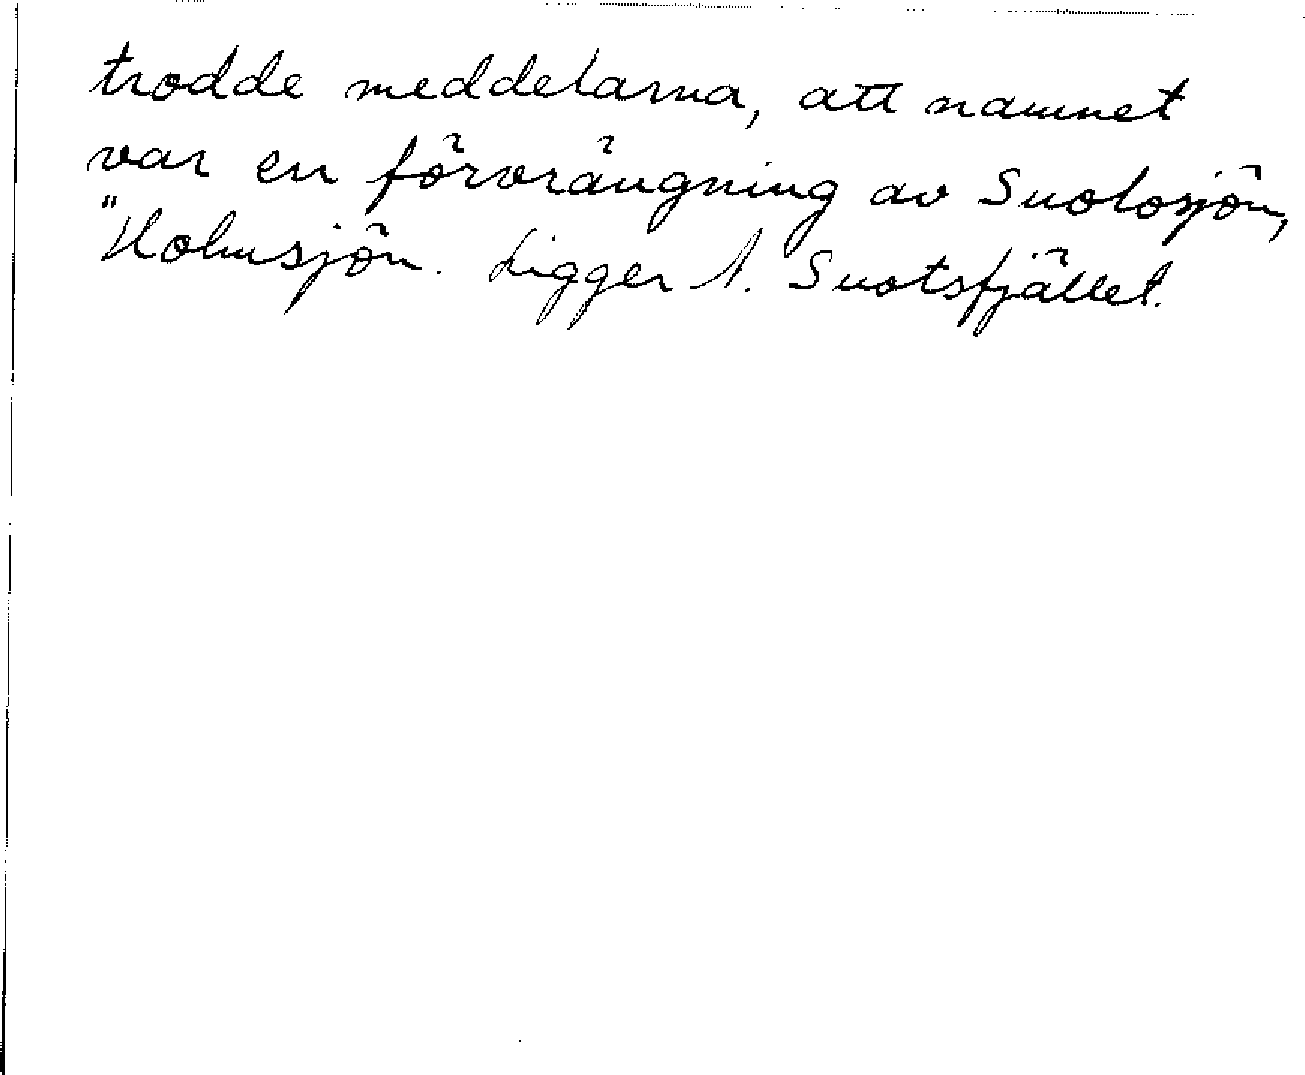 trodde meddelarna, att namnet
var en förvrängning av Suolosjön,
"Holmsjön. Ligger N. Suotsfjället.